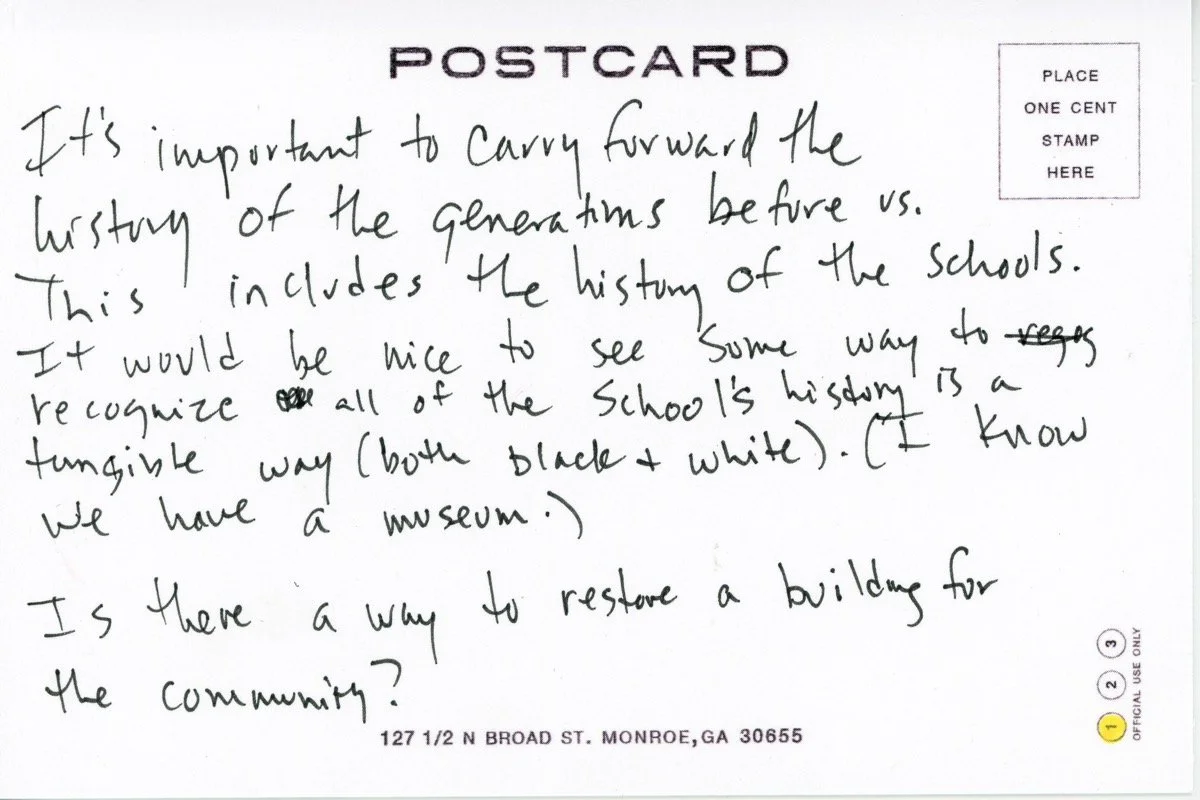 POSTCARD
PLACE
ONE CENT
STAMP
HERE
It's important to carry forward the
history of the generations before us.
This includes the history of the schools.
It would be nice to see some way to
recognize all of the School's history is a
tangible way (both black + white). (I know
we have a museum.)
Is there a way to restore a building for
the community?
127 1/2 N BROAD ST. MONROE, GA 30655
1 2 3
OFFICIAL USE ONLY